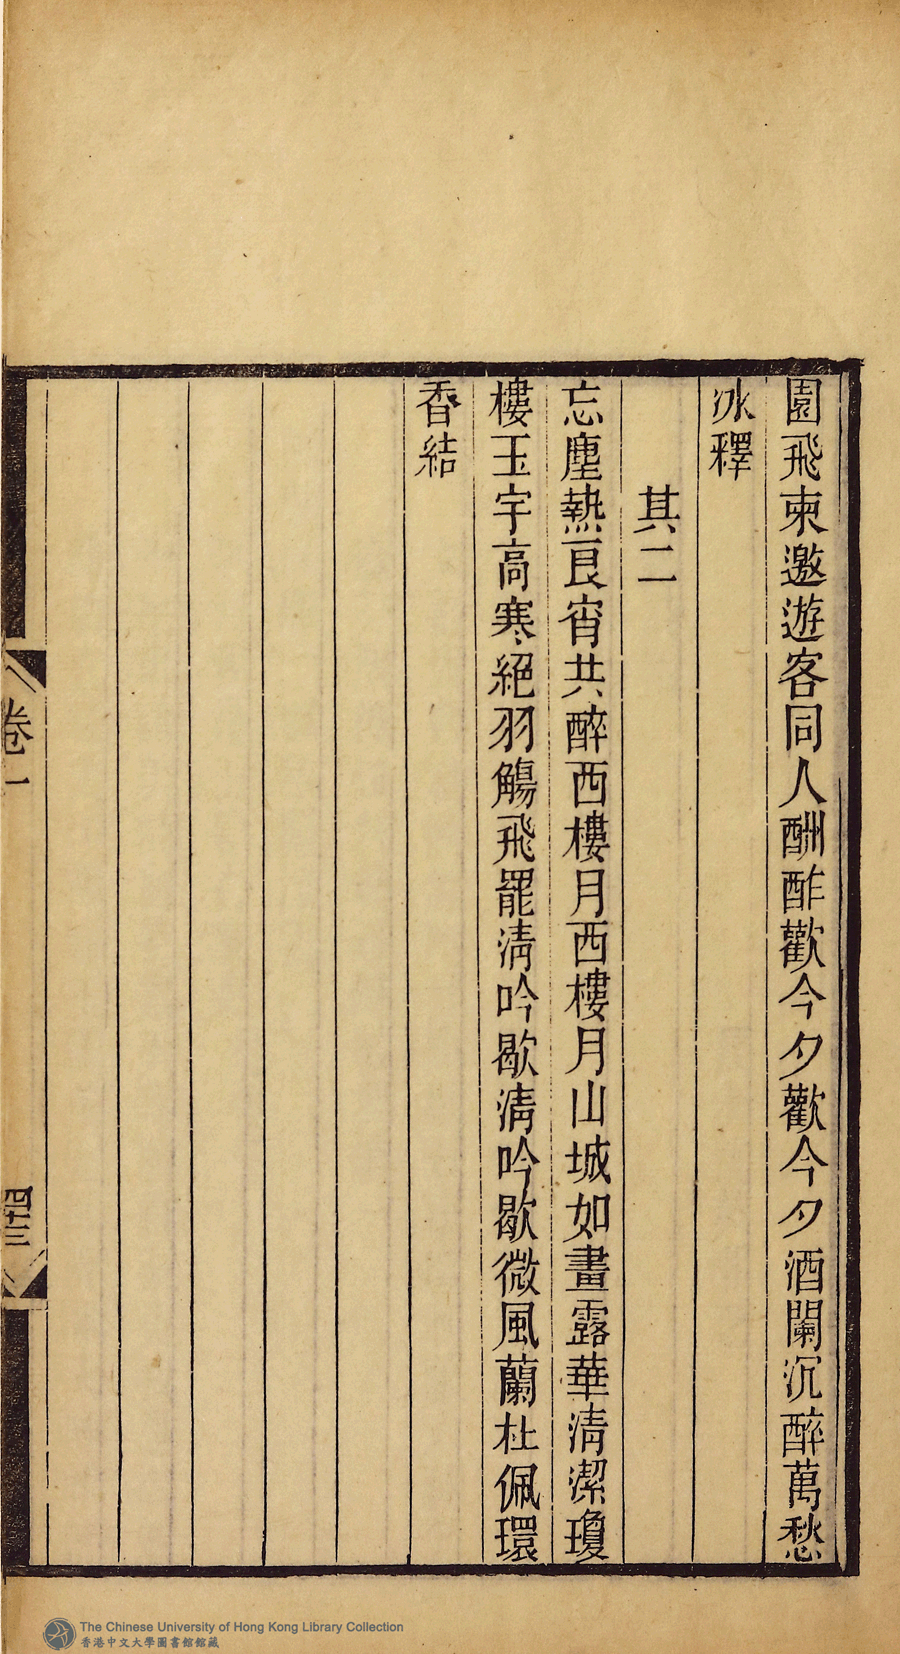 園飛柬邀遊客同人酬酢歡今夕歡今夕酒闌沉醉萬愁
冰釋
其二
忘塵熱良宵共醉西樓月西樓月山城如畫露華淸潔瓊
樓玉宇高寒絕羽觴飛罷淸吟歇淸吟歇微風蘭杜佩環
香結
卷一
四十三
The Chinese University of Hong Kong Library Collection
香港中文大學圖書館館藏